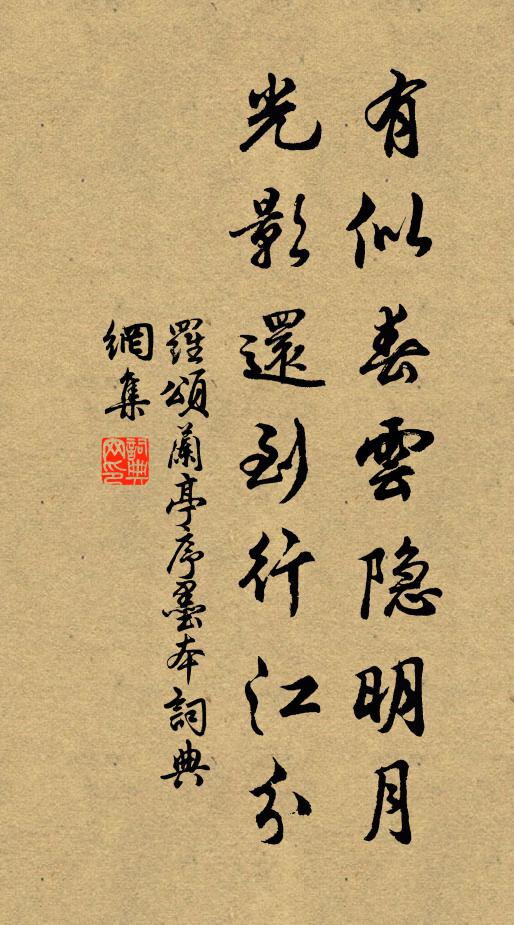 有似春雲隐明月
光影還到行江分
羅頌蘭亭序墨本詞典
網集
詞典
网印